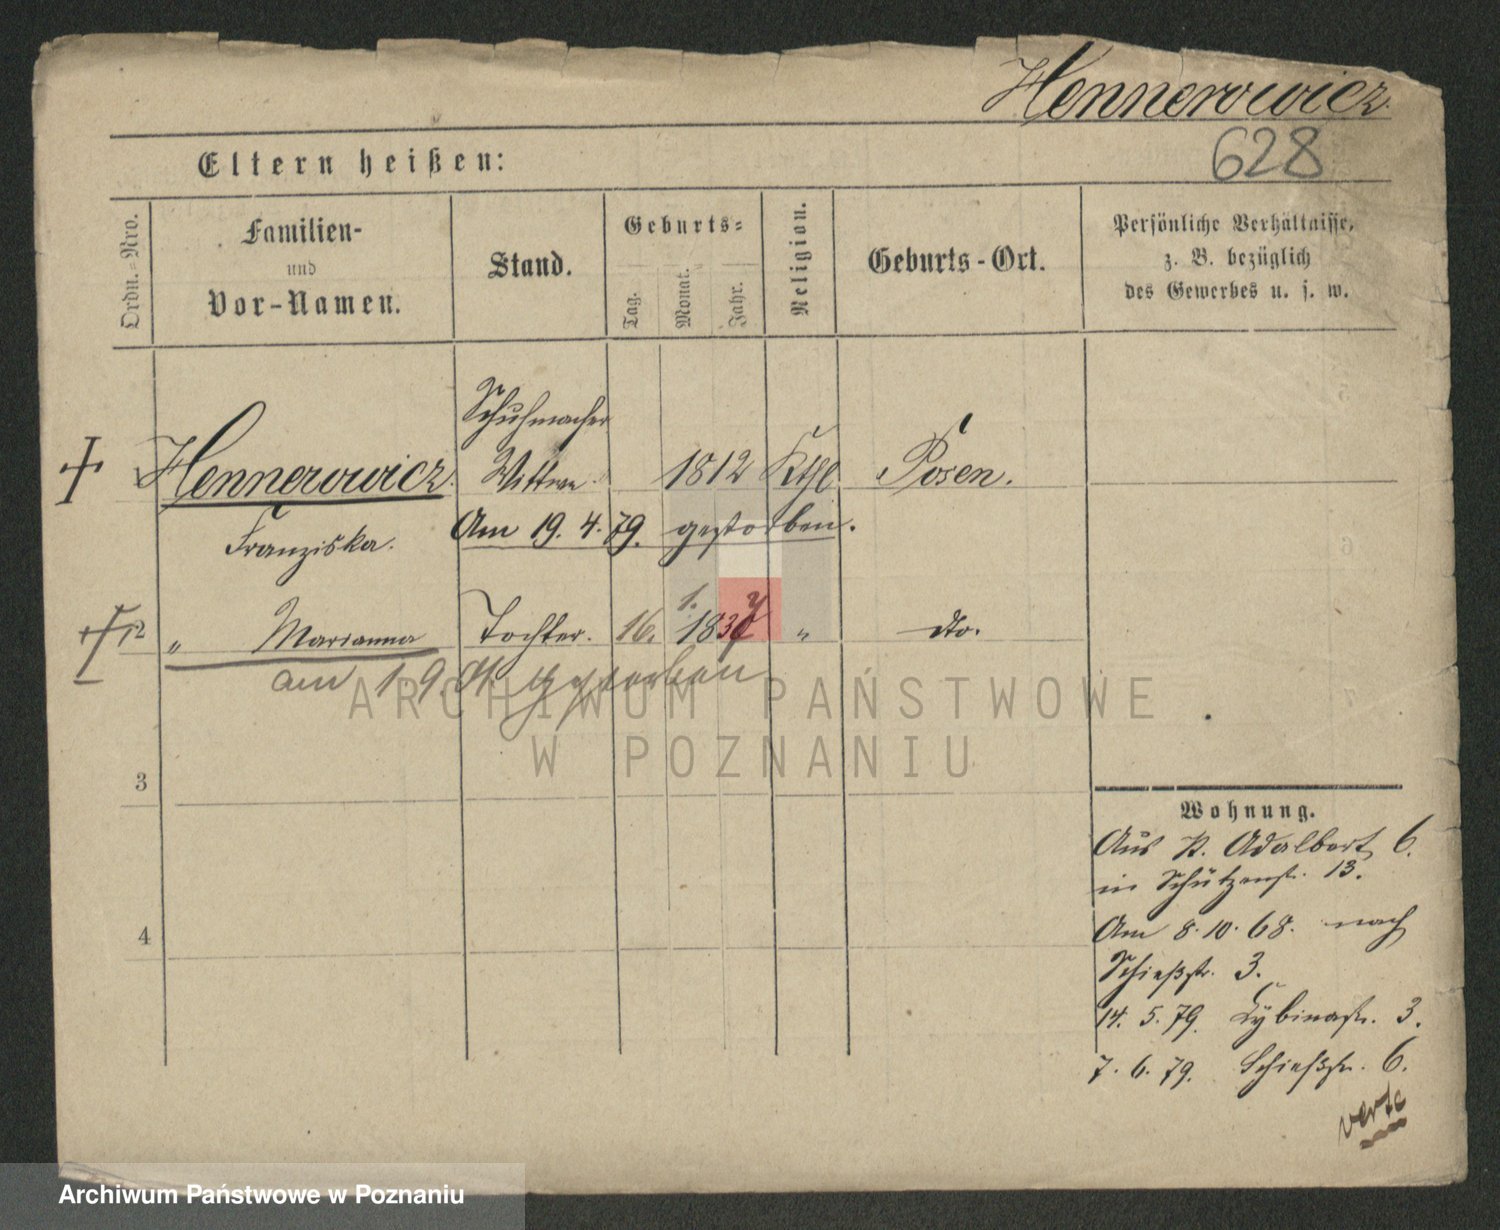 Hennerowicz.
628
Eltern heißen:
Ordn.-Nro.
Familien-
und
Vor-Namen.
Stand.
Geburts-
Tag.
Monat.
Jahr.
Religion.
Geburts-Ort.
Persönliche Verhältnisse,
z. B. bezüglich
des Gewerbes u. s. w.
Schuhmacher
Hennerowicz. Wittwe. 1812 Kthl Posen.
Franziska. Am 19. 4. 79. gestorben.
2 " Marianna Tochter. 16. 1. 183 " dto.
am 1. 9. gestorben
ARCHIWUM PAŃSTWOWE
W POZNANIU
3
4
Wohnung.
Aus St. Adalbert 6.
in Schützenstr. 13.
Am 8. 10. 68. nach
Schießstr. 3.
14. 5. 79. Cybinastr. 3.
7. 6. 79. Schießstr. 6.
verte
Archiwum Państwowe w Poznaniu